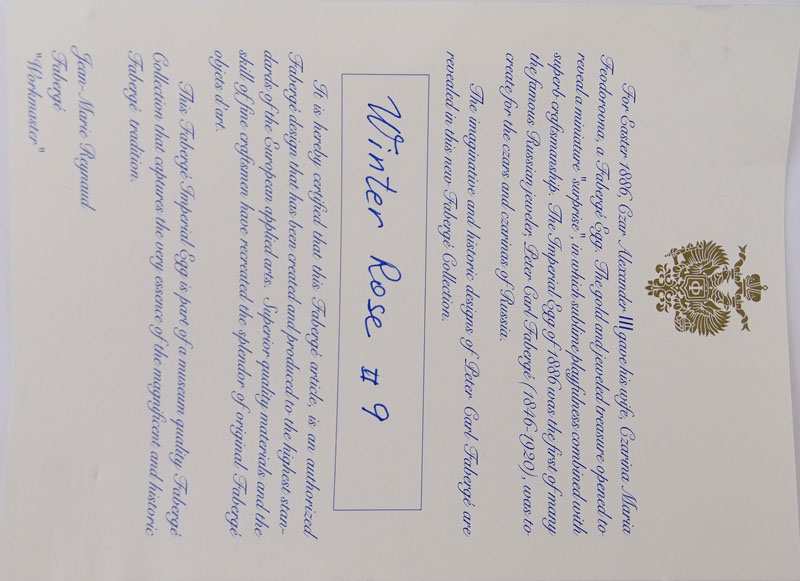 For Easter 1886, Czar Alexander III gave his wife, Czarina Maria
Feodorovna, a Fabergé Egg. The gold and jeweled treasure opened to
reveal a miniature "surprise", in which sublime playfulness combined with
superb craftsmanship. The Imperial Egg of 1886 was the first of many
the famous Russian jeweler, Peter Carl Fabergé (1846-1920), was to
create for the czars and czarinas of Russia.
The imaginative and historic designs of Peter Carl Fabergé are
revealed in this new Fabergé Collection.
Winter Rose # 9
It is hereby certified that this Fabergé article, is an authorized
Fabergé design that has been created and produced to the highest stan-
dards of the European applied arts. Superior quality materials and the
skill of fine craftsmen have recreated the splendor of original Fabergé
objets d'art.
This Fabergé Imperial Egg is part of a museum quality Fabergé
Collection that captures the very essence of the magnificent and historic
Fabergé tradition.
Jean-Marie Reynaud
Fabergé
"Workmaster"